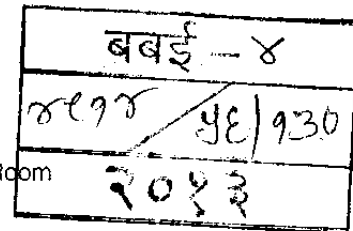 बबई - ४
४९१४ / ५६/१३०
oom २०१३